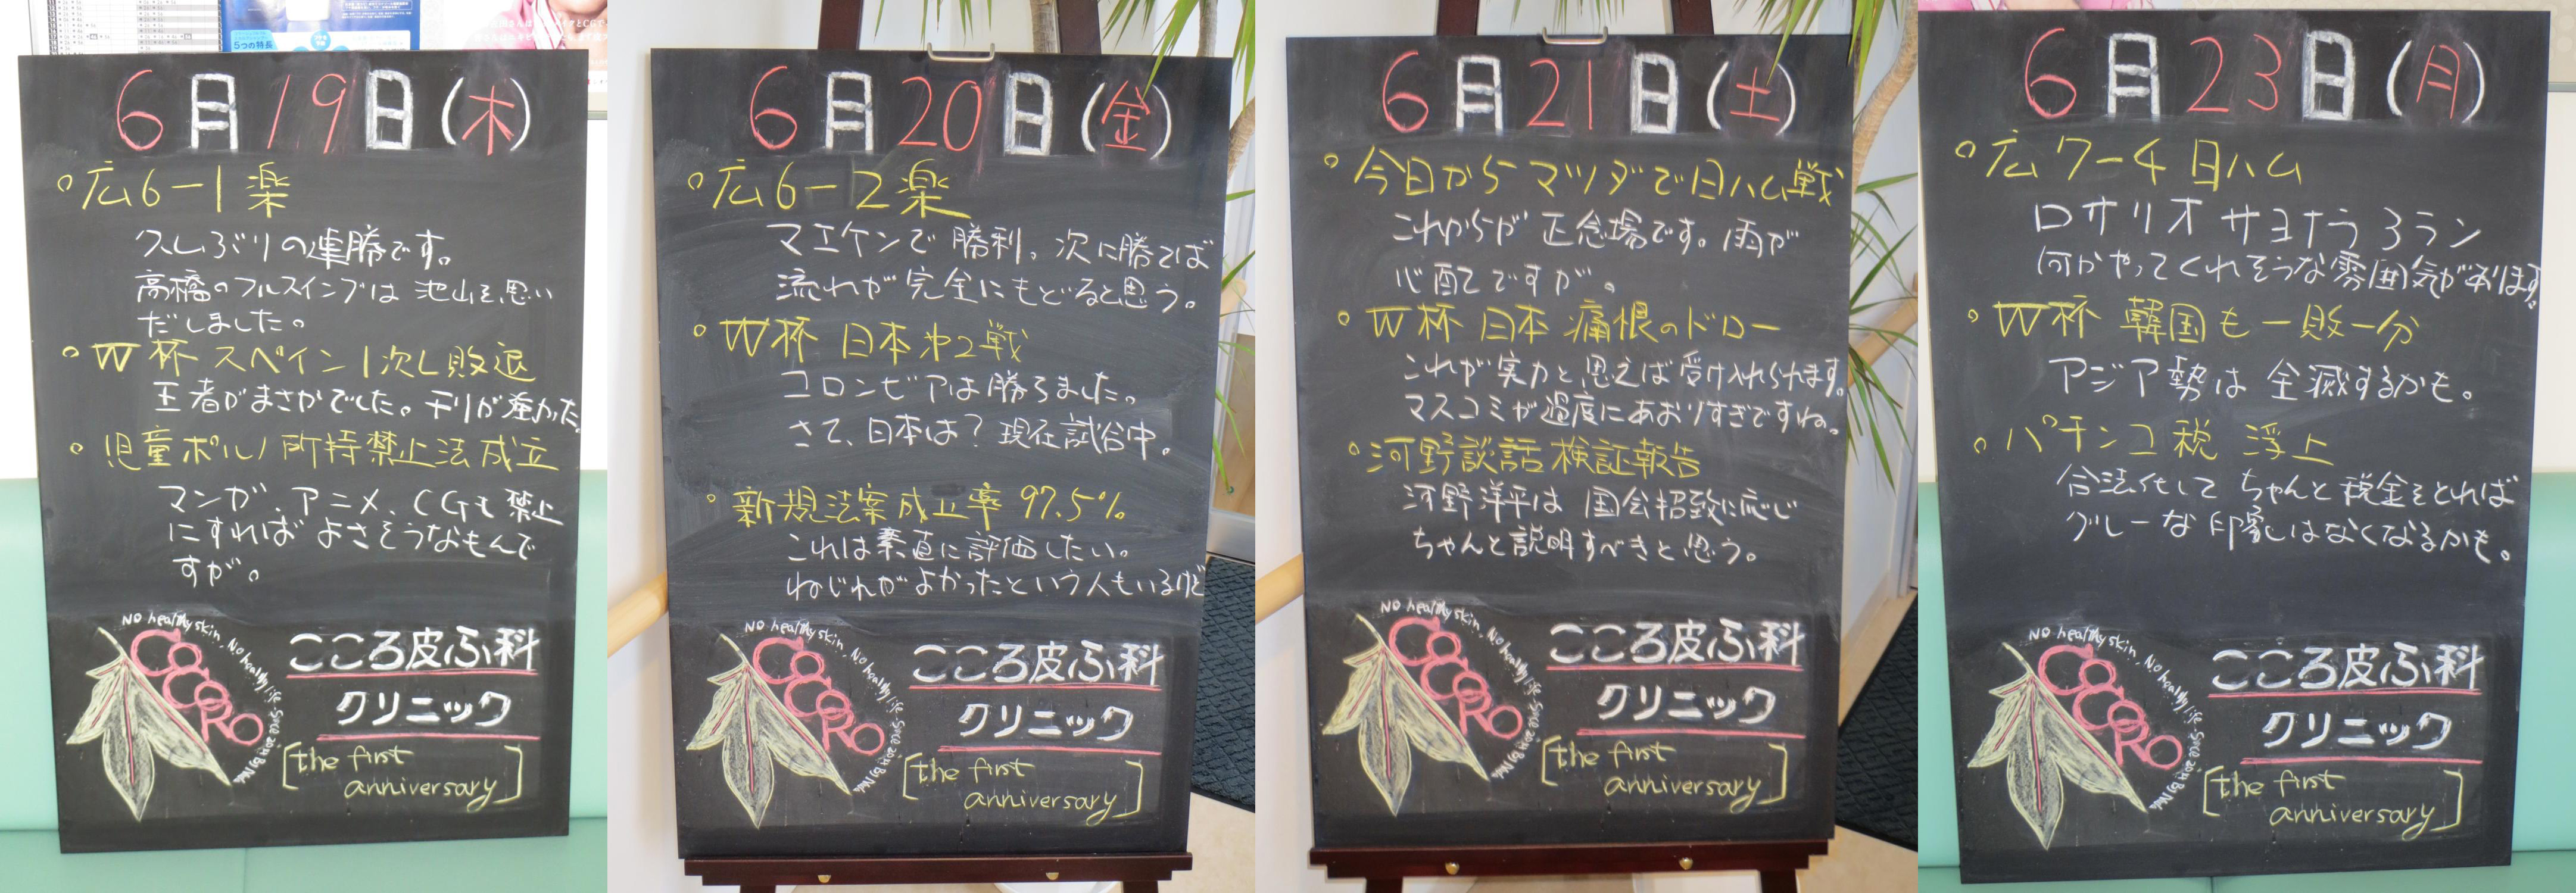 5つの特長
6月19日(木)
。広6-1楽
久しぶりの連勝です。
高橋のフルスイングは池山を思い
だしました。
。W杯 スペイン1次L敗退
王者がまさかでした。チリが強かった。
。児童ポルノ所持禁止法成立
マンガ、アニメ、CGも禁止
にすれば よさそうなもんで
すが。
No healthy skin, No healthy life
COCORO
こころ皮ふ科
クリニック
[the first
anniversary]
6月20日(金)
。広6-2楽
マエケンで勝利。次に勝てば
流れが完全にもどると思う。
。W杯 日本第2戦
コロンビアは勝ちました。
さて、日本は?現在試合中。
。新規法案成立率97.5%
これは素直に評価したい。
ねじれがよかったという人もいるけど
No healthy skin, No healthy life
COCORO
こころ皮ふ科
クリニック
[the first
anniversary]
6月21日(土)
。今日からマツダで日ハム戦
これからが正念場です。雨が
心配ですが。
。W杯 日本 痛恨のドロー
これが実力と思えば受け入れられます。
マスコミが過度にあおりすぎですね。
。河野談話検証報告
河野洋平は国会招致に応じ
ちゃんと説明すべきと思う。
No healthy skin, No healthy life
COCORO
こころ皮ふ科
クリニック
[the first
anniversary]
6月23日(月)
。広7-4日ハム
ロサリオ サヨナラ3ラン
何かやってくれそうな雰囲気があります。
。W杯 韓国も一敗一分
アジア勢は全滅するかも。
。パチンコ税 浮上
合法化して ちゃんと税金をとれば
グレーな印象はなくなるかも。
No healthy skin, No healthy life
COCORO
こころ皮ふ科
クリニック
[the first
anniversary]